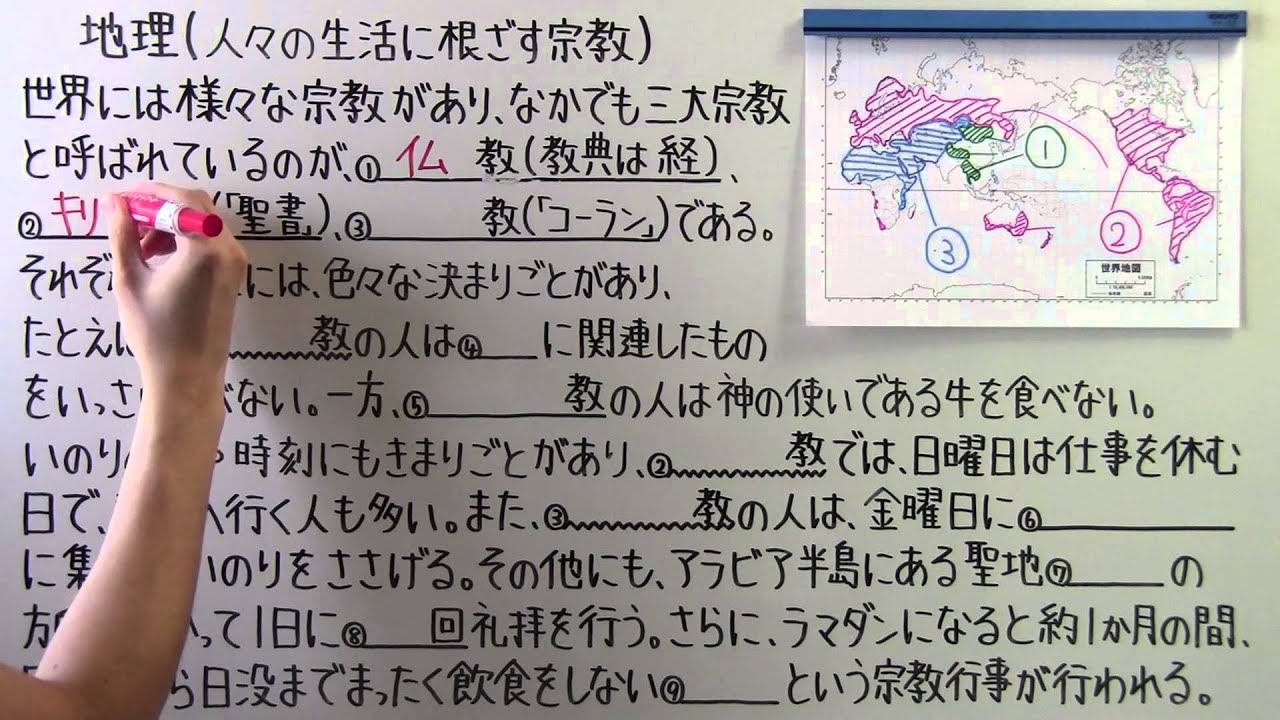 地理(人々の生活に根ざす宗教)
世界には様々な宗教があり、なかでも三大宗教
と呼ばれているのが、①仏教(教典は経)、
②キリ(「聖書」)、③教(「コーラン」)である。
それぞには、色々な決まりごとがあり、
たとえ教の人は④に関連したもの
をいっさべない。一方、⑤教の人は神の使いである牛を食べない。
いのり時刻にもきまりごとがあり、②教では、日曜日は仕事を休む
日で、へ行く人も多い。また、③教の人は、金曜日に⑥
に集いのりをささげる。その他にも、アラビア半島にある聖地⑦の
方って1日に⑧回礼拝を行う。さらに、ラマダンになると約1か月の間、
ら日没までまったく飲食をしない⑨という宗教行事が行われる。
①
②
③
世界地図